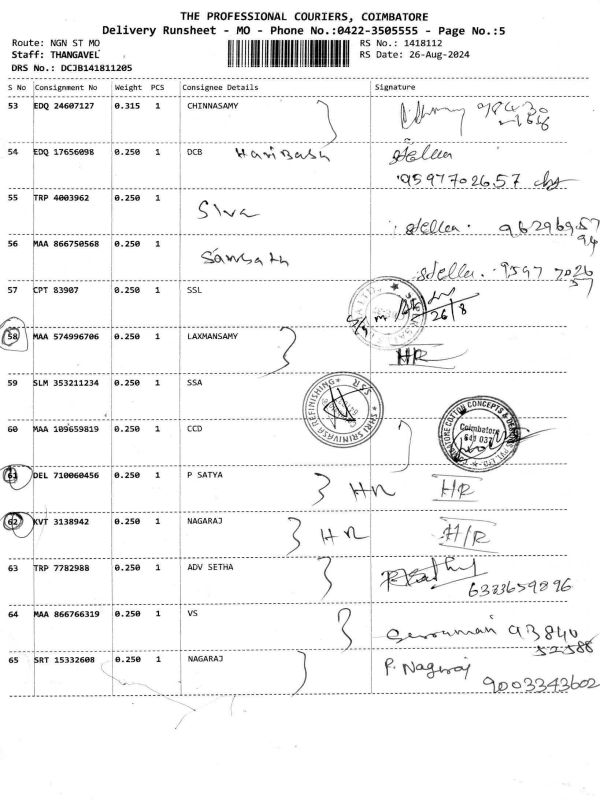 THE PROFESSIONAL COURIERS, COIMBATORE
Delivery Runsheet - MO - Phone No.:0422-3505555 - Page No.:5
Route: NGN ST MO RS No.: 1418112
Staff: THANGAVEL RS Date: 26-Aug-2024
DRS No.: DCJB141811205
S No Consignment No Weight PCS Consignee Details Signature
53 EDQ 24607127 0.315 1 CHINNASAMY
54 EDQ 17656098 0.250 1 DCB stella
9597702657
55 TRP 4003962 0.250 1 Siva stella.
56 MAA 866750568 0.250 1 Sambath stella. 9597 7026
57
57 CPT 83907 0.250 1 SSL
26/8
58 MAA 574996706 0.250 1 LAXMANSAMY HR
59 SLM 353211234 0.250 1 SSA
SHRI SRINIVASA REFINISHING
60 MAA 109659819 0.250 1 CCD
Coimbatore
641 037
61 DEL 710060456 0.250 1 P SATYA HR HR
62 KVT 3138942 0.250 1 NAGARAJ HR H/R
63 TRP 7782988 0.250 1 ADV SETHA
6383659896
64 MAA 866766319 0.250 1 VS 93840
52588
65 SRT 15332608 0.250 1 NAGARAJ P. Nagaraj
9003343602